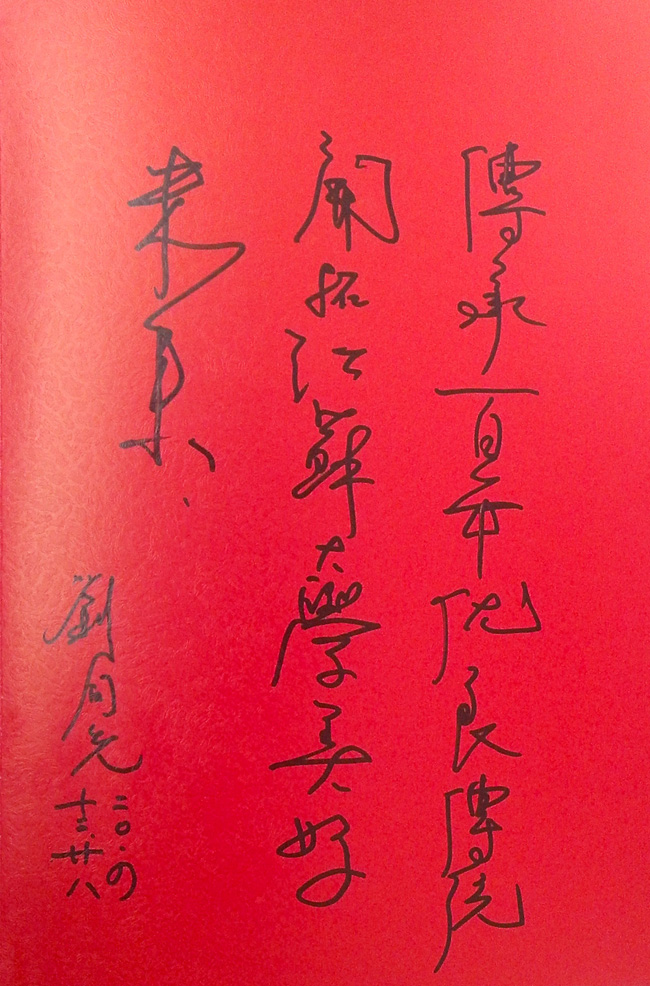 傳承一百年优良傳統
開拓江蘇大學美好
未来
劉
二〇·四
十二·廿八